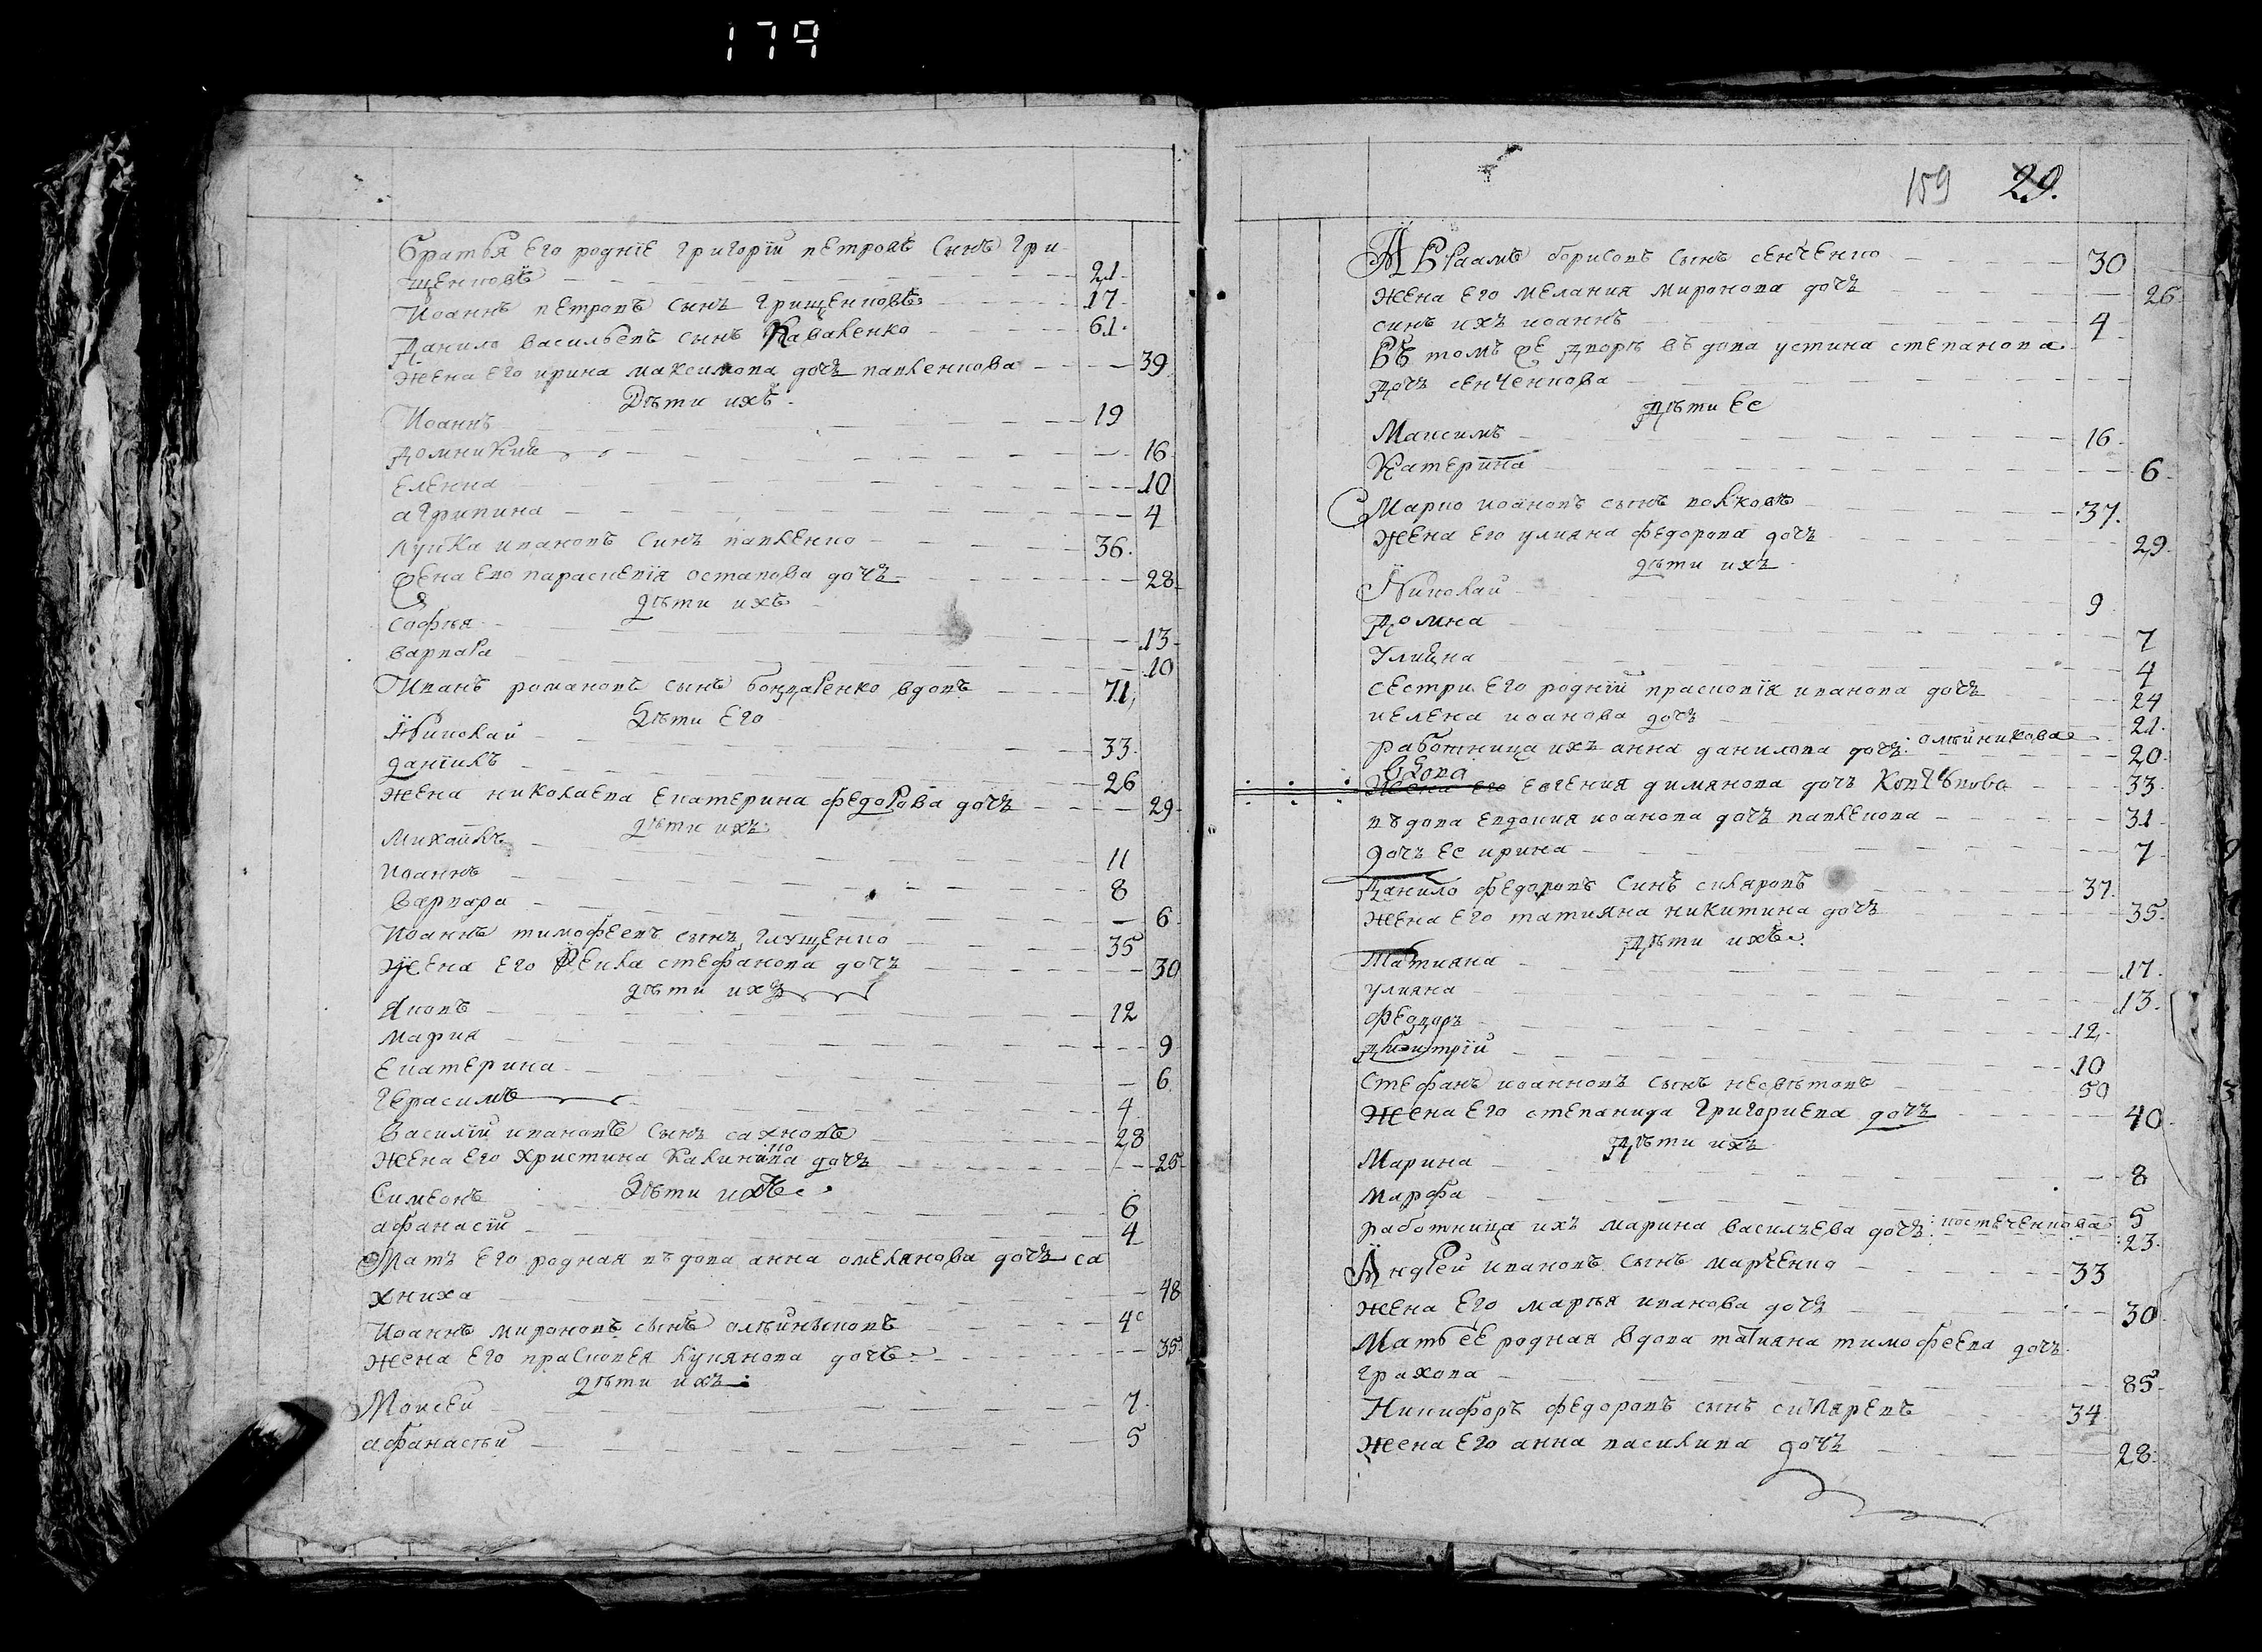 179
Братья Его роднїе григорїй петровъ Сынъ гри
щенковъ 21
Иоаннъ петровъ Сынъ грищенковъ 17
Данило васильевъ сынъ Кавале́нко 61
Жена Его ирина максимова дочъ павленкова 39
Дѣти ихъ
Иоаннъ 19
Домникия 16
Еленна 10
агрипина 4
лупка ивановъ Синъ павленко 36
жена его параскевїя остапова дочъ 28
дѣти ихъ
Софья 13
варвара 10
Иванъ романовъ сынъ бондаренко вдовъ 71
Дѣти Его
Николай 33
данїилъ 26
Жена николаева Екатерина федорова дочъ 29
дѣти ихъ
Михайлъ 11
иоаннъ 8
Варвара 6
Иоаннъ тимофеевъ сынъ глущенко 35
Жена Его Фекла стефанова дочъ 30
дѣти ихъ
Яковъ 12
мария 9
Екатерина 6
герасимъ 4
Василїй ивановъ Сынъ сахновъ 28
Жена Его христина Калинина дочъ 25
Дѣти ихъ
Симеонъ 6
афанасїй 4
Матъ Его родная въдова анна омелянова дочъ са
хниха 48
Иоаннъ мироновъ сынъ олѣйныковъ 40
жена Его прасковея лукянова дочъ 35
дѣти ихъ
Моисей 7
афанасѣй 5
159 29.
Авраамъ борисовъ сынъ сенченко 30
жена Его мелания миронова дочъ 26
синъ ихъ иоаннъ 4
Въ томъ же дворѣ въдова устина степанова
дочъ сенченкова
дѣти Ее
Максимъ 16
Катерина 6
Марко иоановъ сынъ волковъ 37
Жена Его улияна федорова дочъ 29
дѣти ихъ
Николай 9
Домна 7
Улияна 4
сестри Его роднїй прасковїя иванова дочъ 24
иелена иоанова дочъ 21
работница ихъ анна данилова дочъ олѣйникова 20
вдова
Жена его Евгения димянова дочъ 33
въдова Евдокия иоанова дочъ павленкова 31
дочъ Ее ирина 7
Данило федоровъ Синъ скляровъ 37
жена Его татияна никитина дочъ 35
дѣти ихъ
Татияна 17
улияна 13
федоръ 12
димитрїй 10
Стефанъ иоанновъ сынъ несвѣтовъ 50
Жена Его степанида григориева дочъ 40
дѣти ихъ
Марина 8
марфа 5
работница ихъ марина василъева дочъ костеченкова 23
Андрей ивановъ сынъ марченко 33
жена Его маръя иванова дочъ 30
Матъ Ее родная вдова татияна тимофеева дочъ
грахова 85
Никифоръ федоровъ сынъ скляревъ 34
жена Его анна василива дочъ 28